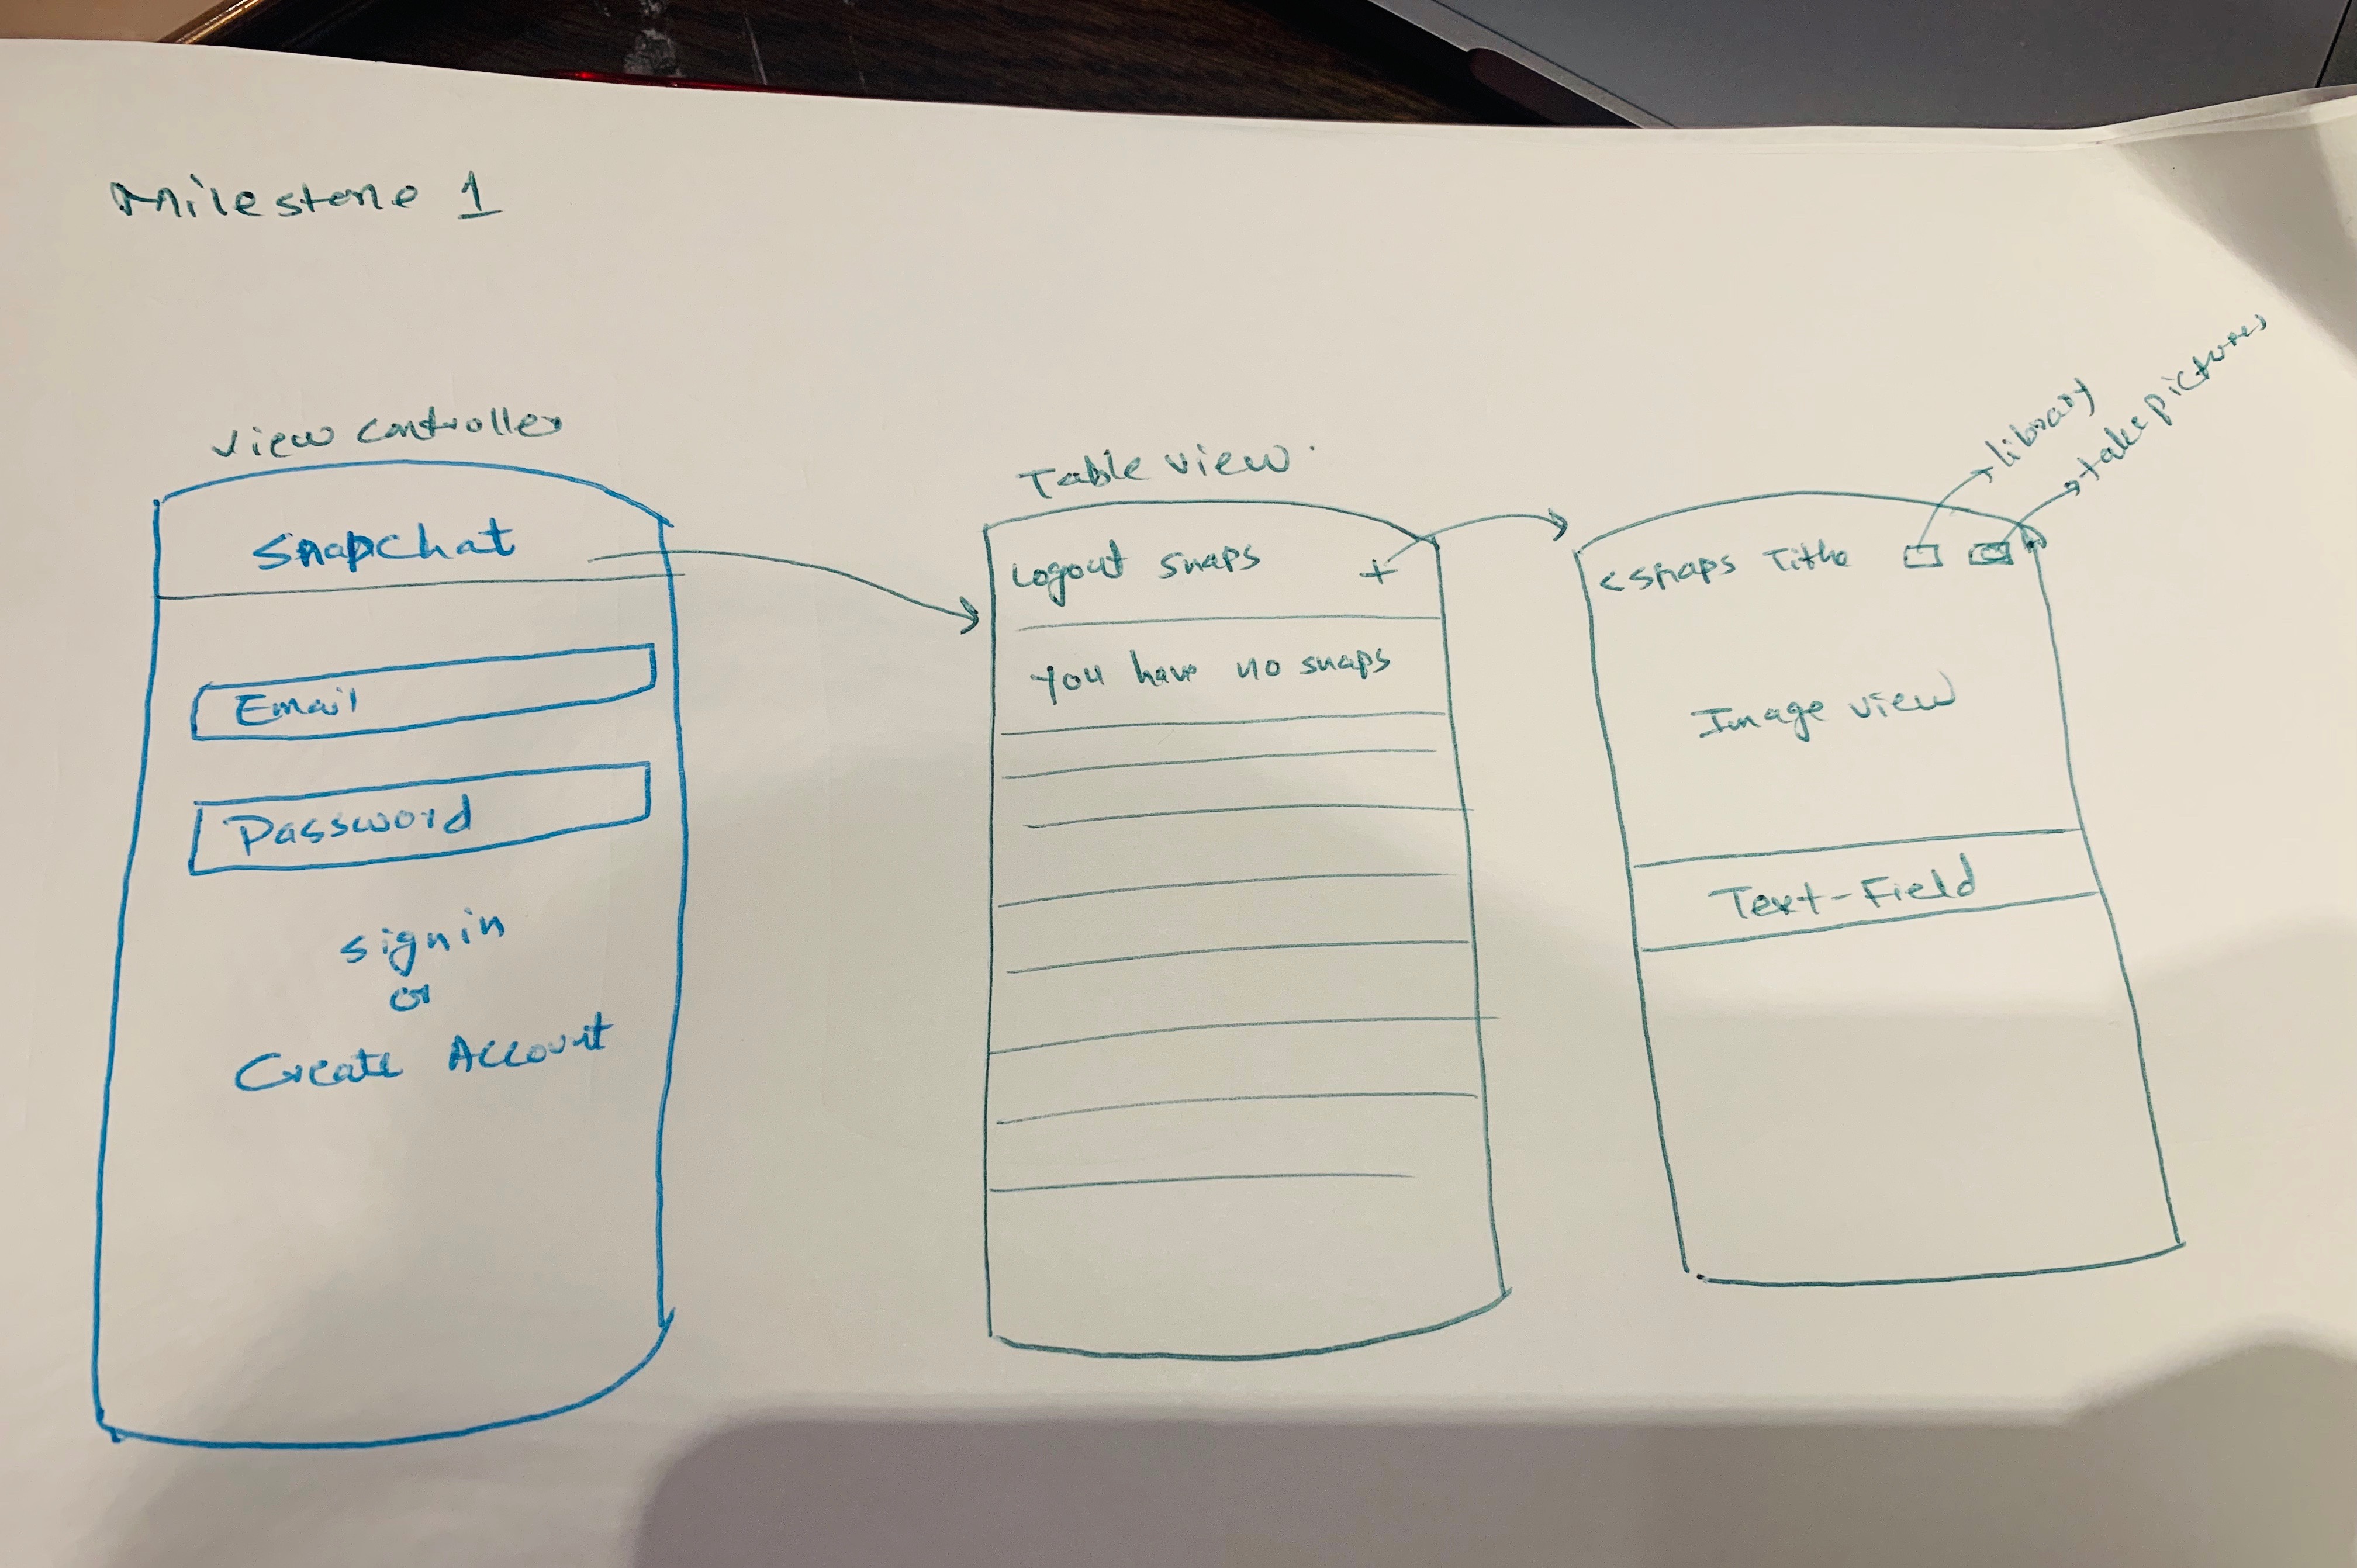 Milestone 1
View Controller
Snapchat
Email
Password
signin
or
Create Account
Table view
Logout snaps +
You have no snaps
library
take pictures
< snaps Title
Image view
Text-Field